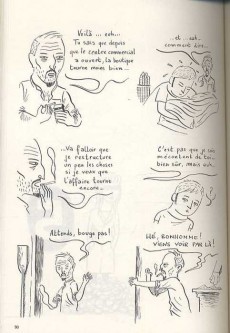 Voilà... euh...
Tu sais que depuis
que le centre commercial
a ouvert, la boutique
tourne moins bien...
...et...euh...
comment dire...
...Va falloir que
je restructure
un peu les choses
si je veux que
l'affaire tourne
encore...
C'est pas que je sois
mécontent de toi,
bien sûr, mais euh...
Attends, bouge pas!
HÉ, BONHOMME!
VIENS VOIR PAR LÀ!